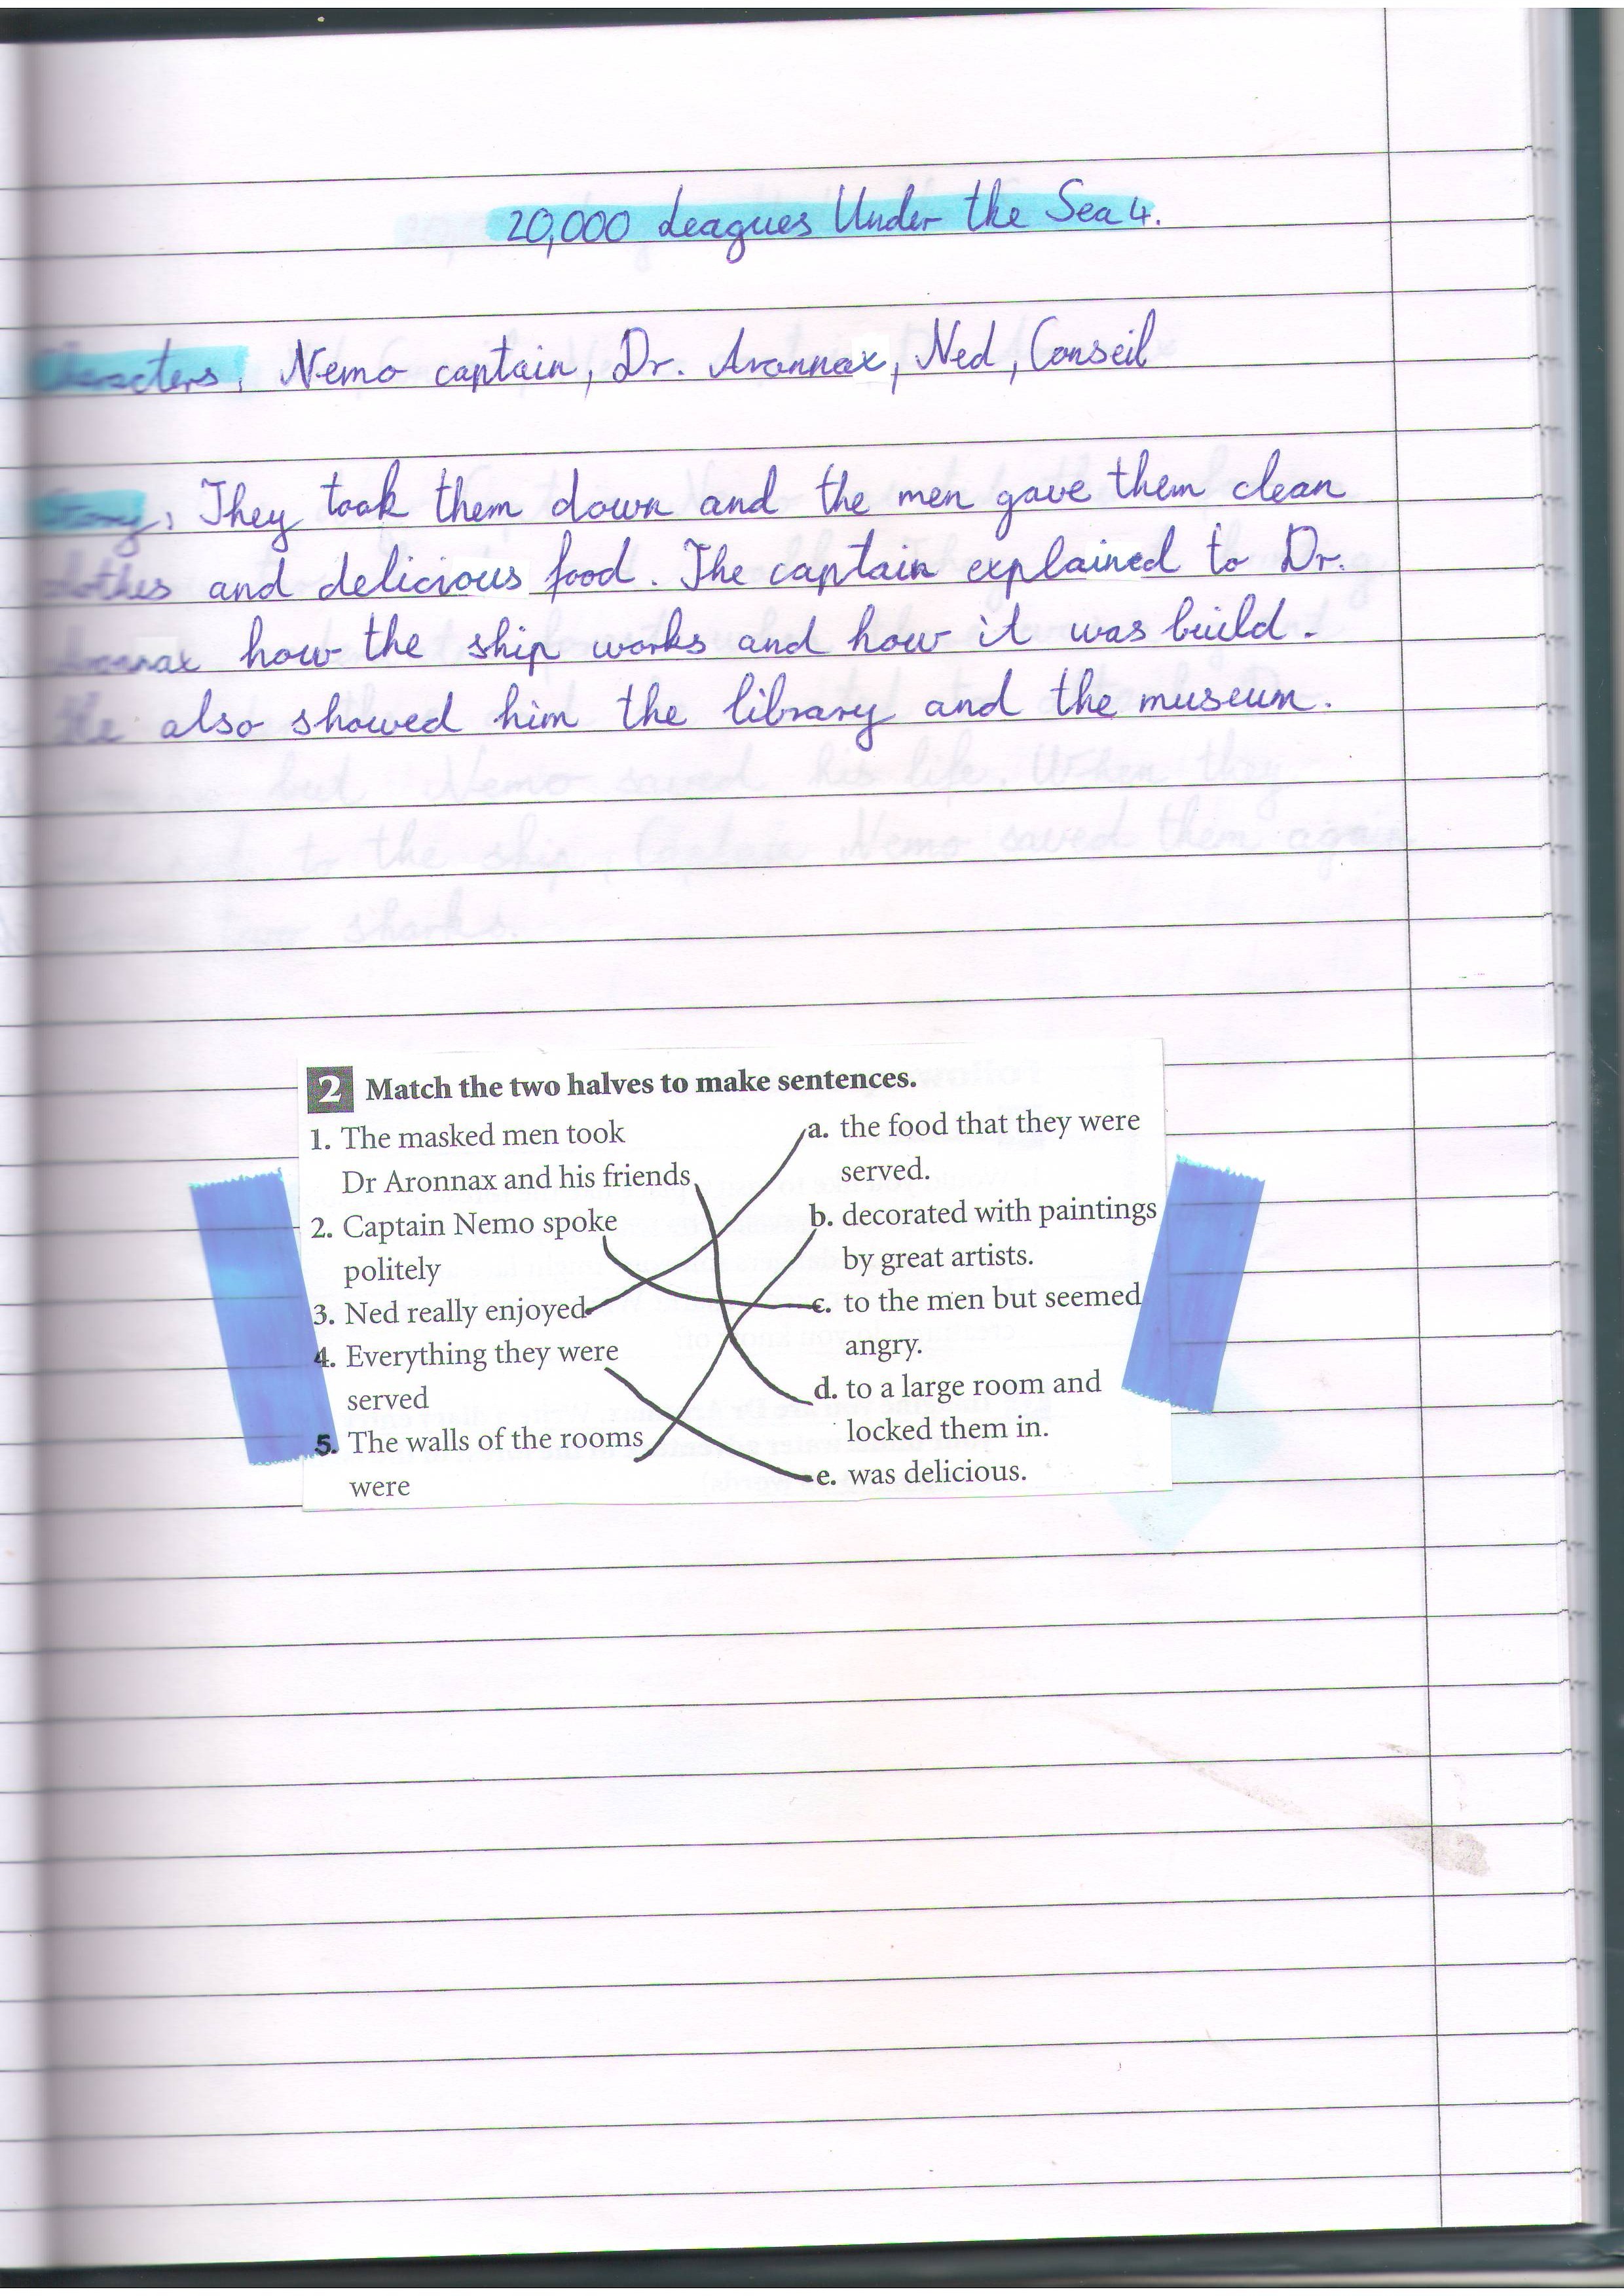 20,000 Leagues Under the Sea 4.
Characters: Nemo captain, Dr. Aronnax, Ned, Conseil
Story: They took them down and the men gave them clean
clothes and delicious food. The captain explained to Dr.
Aronnax how the ship works and how it was build.
He also showed him the library and the museum.
but Nemo saved his life. When they
to the ship, Captain Nemo saved them again
two sharks.
2 Match the two halves to make sentences.
1. The masked men took
Dr Aronnax and his friends
2. Captain Nemo spoke
politely
3. Ned really enjoyed
4. Everything they were
served
5. The walls of the rooms
were
a. the food that they were
served.
b. decorated with paintings
by great artists.
c. to the men but seemed
angry.
d. to a large room and
locked them in.
e. was delicious.